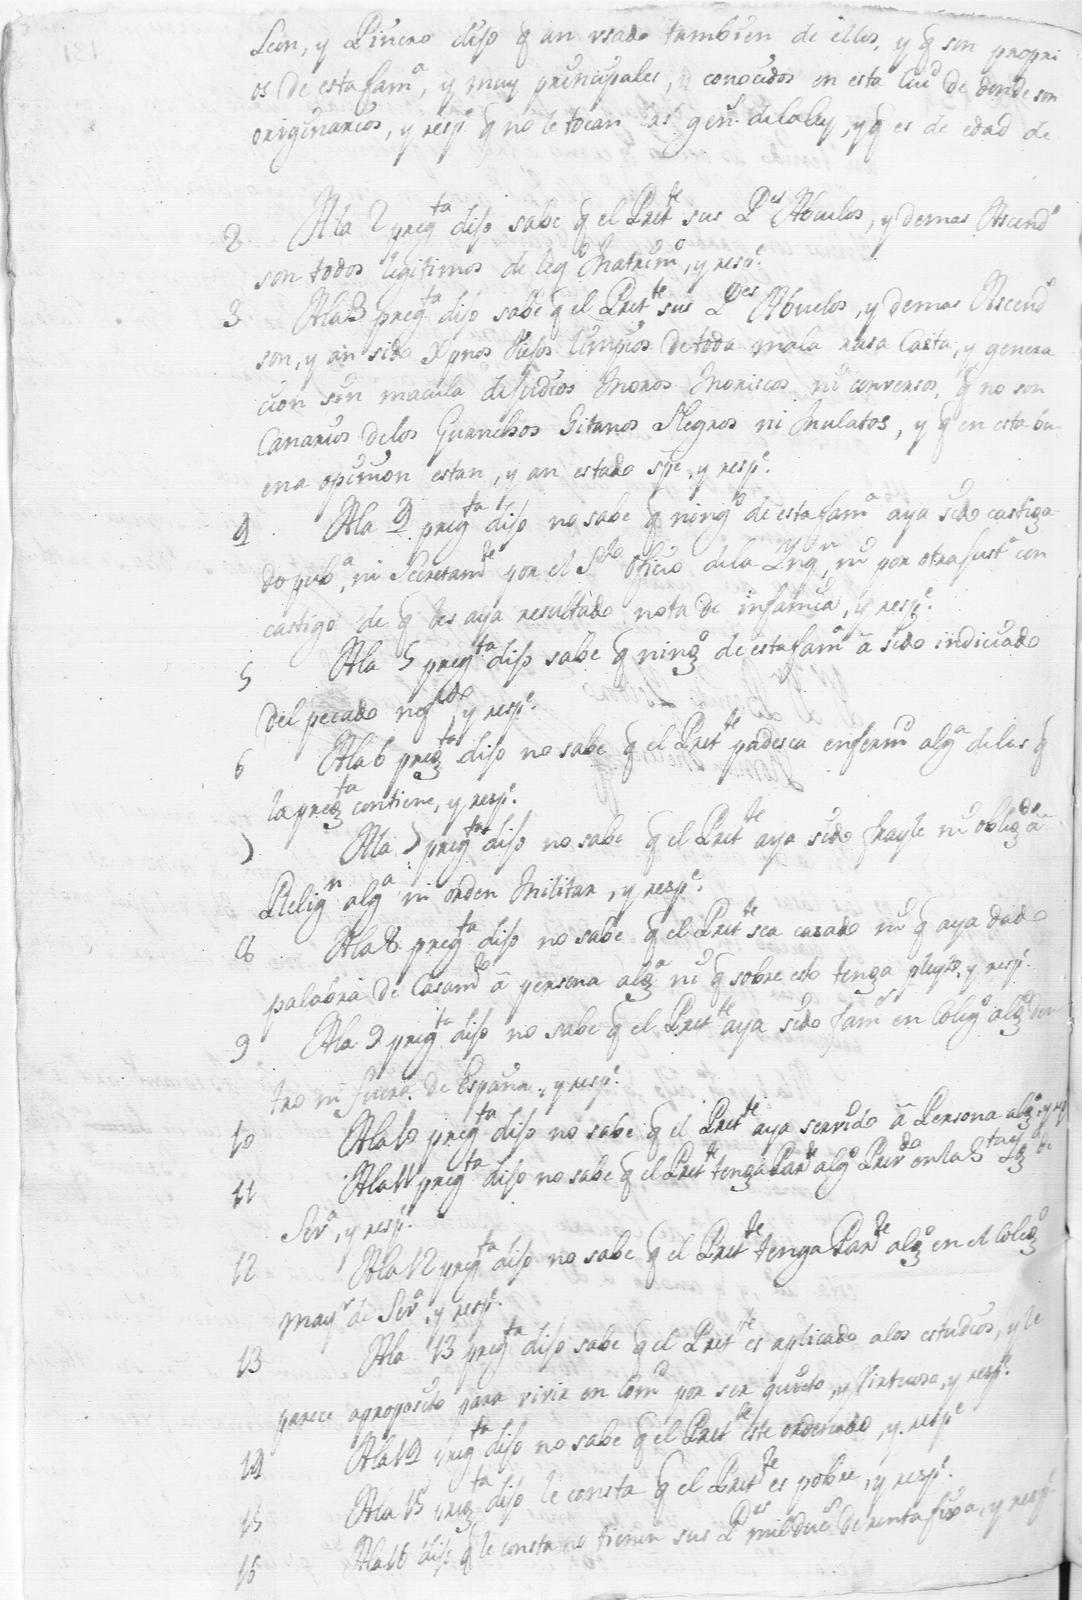 Leon, y Piñero dijo q an vsado tambien de ellos, y q son propri
os de esta famᵃ, y muy principales, y conocidos en esta Ciuᵈ de donde son
originarios, y respᵉ q no le tocan las genˢ dela ley, y q es de edad de
2 Ala 2 pregᵗᵃ dijo sabe q el Pretᵗᵉ sus Pᵉˢ Abuelos, y demas Ascendˢ
son todos legitimos de legᵒ Matrimᵒ, y respᵉ.
3 Ala 3 pregᵗᵃ dijo sabe q el Pretᵗᵉ sus Pᵉˢ Abuelos, y demas Ascendˢ
son, y an sido Xpnos Viejos limpios de toda mala rasa Casta, y genera
cion sin macula de Judios Moros Moriscos ni conversos, q no son
Canarios de los Guanchos Gitanos Negros ni Mulatos, y q en esta bu
ena opinion estan, y an estado spe, y respᵉ.
4 Ala 4 pregᵗᵃ dijo no sabe q ningᵒ de esta famᵃ aya sido castiga
do pubᵃ, ni Secretamᵗᵉ por el Sᵗᵒ Oficio de la Inqⁿ, ni por otra Justᵃ con
castigo de q les aya resultado nota de infamia, y respᵉ.
5 Ala 5 pregᵗᵃ dijo sabe q ningᵒ de esta famᵃ ā sido indiciado
del pecado nefᵈᵒ, y respᵉ.
6 Ala 6 pregᵗᵃ dijo no sabe q el Pretᵗᵉ padesca enfermᵈ algᵃ de las q
la pregᵗᵃ contiene, y respᵉ.
7 Ala 7 pregᵗᵃ dijo no sabe q el Pretᵗᵉ aya sido frayle ni obligᵈᵒ ā
Religⁿ algᵃ ni orden Militar, y respᵉ.
8 Ala 8 pregᵗᵃ dijo no sabe q el Pretᵗᵉ sea casado ni q aya dado
palabra de Casamᵗᵒ ā persona algᵃ ni q sobre esto tenga pleyto, y respᵉ.
9 Ala 9 pregᵗᵃ dijo no sabe q el Pretᵗᵉ aya sido famʳ en Colegᵒ algᵒ den
tro ni fuera de España, y respᵉ.
10 Ala 10 pregᵗᵃ dijo no sabe q el Pretᵗᵉ aya servido ā Persona algᵃ, y respᵉ
11 Ala 11 pregᵗᵃ dijo no sabe q el Pretᵗᵉ tenga Parᵗᵉ algᵒ en la Sᵗᵃ de
Sevᵃ, y respᵉ.
12 Ala 12 pregᵗᵃ dijo no sabe q el Pretᵗᵉ tenga Parᵗᵉ algᵒ en el Colegᵒ
mayʳ de Sevᵃ, y respᵉ.
13 Ala 13 pregᵗᵃ dijo sabe q el Pretᵗᵉ es aplicado a los estudios, y le
parece aproposito para vivir en Comᵈ por ser quieto, y Virtuoso, y respᵉ.
14 Ala 14 pregᵗᵃ dijo no sabe q el Pretᵗᵉ este ordenado, y respᵉ
15 Ala 15 pregᵗᵃ dijo le consta q el Pretᵗᵉ es pobre, y respᵉ.
16 Ala 16 dijo q le consta no tienen sus Pᵉˢ mil Ducˢ de renta fixa, y respᵉ.